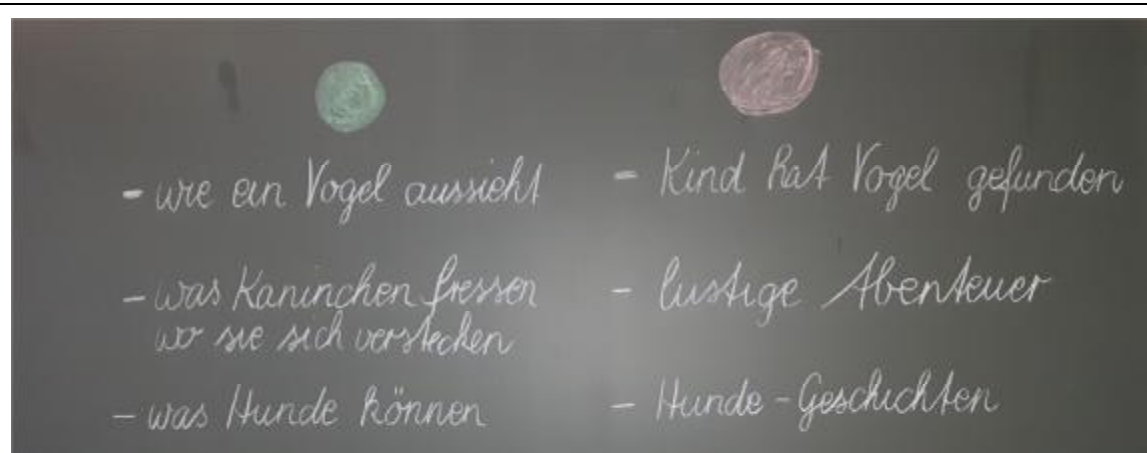 - wie ein Vogel aussieht
- was Kaninchen fressen
wo sie sich verstecken
- was Hunde können
- Kind hat Vogel gefunden
- lustige Abenteuer
- Hunde-Geschichten